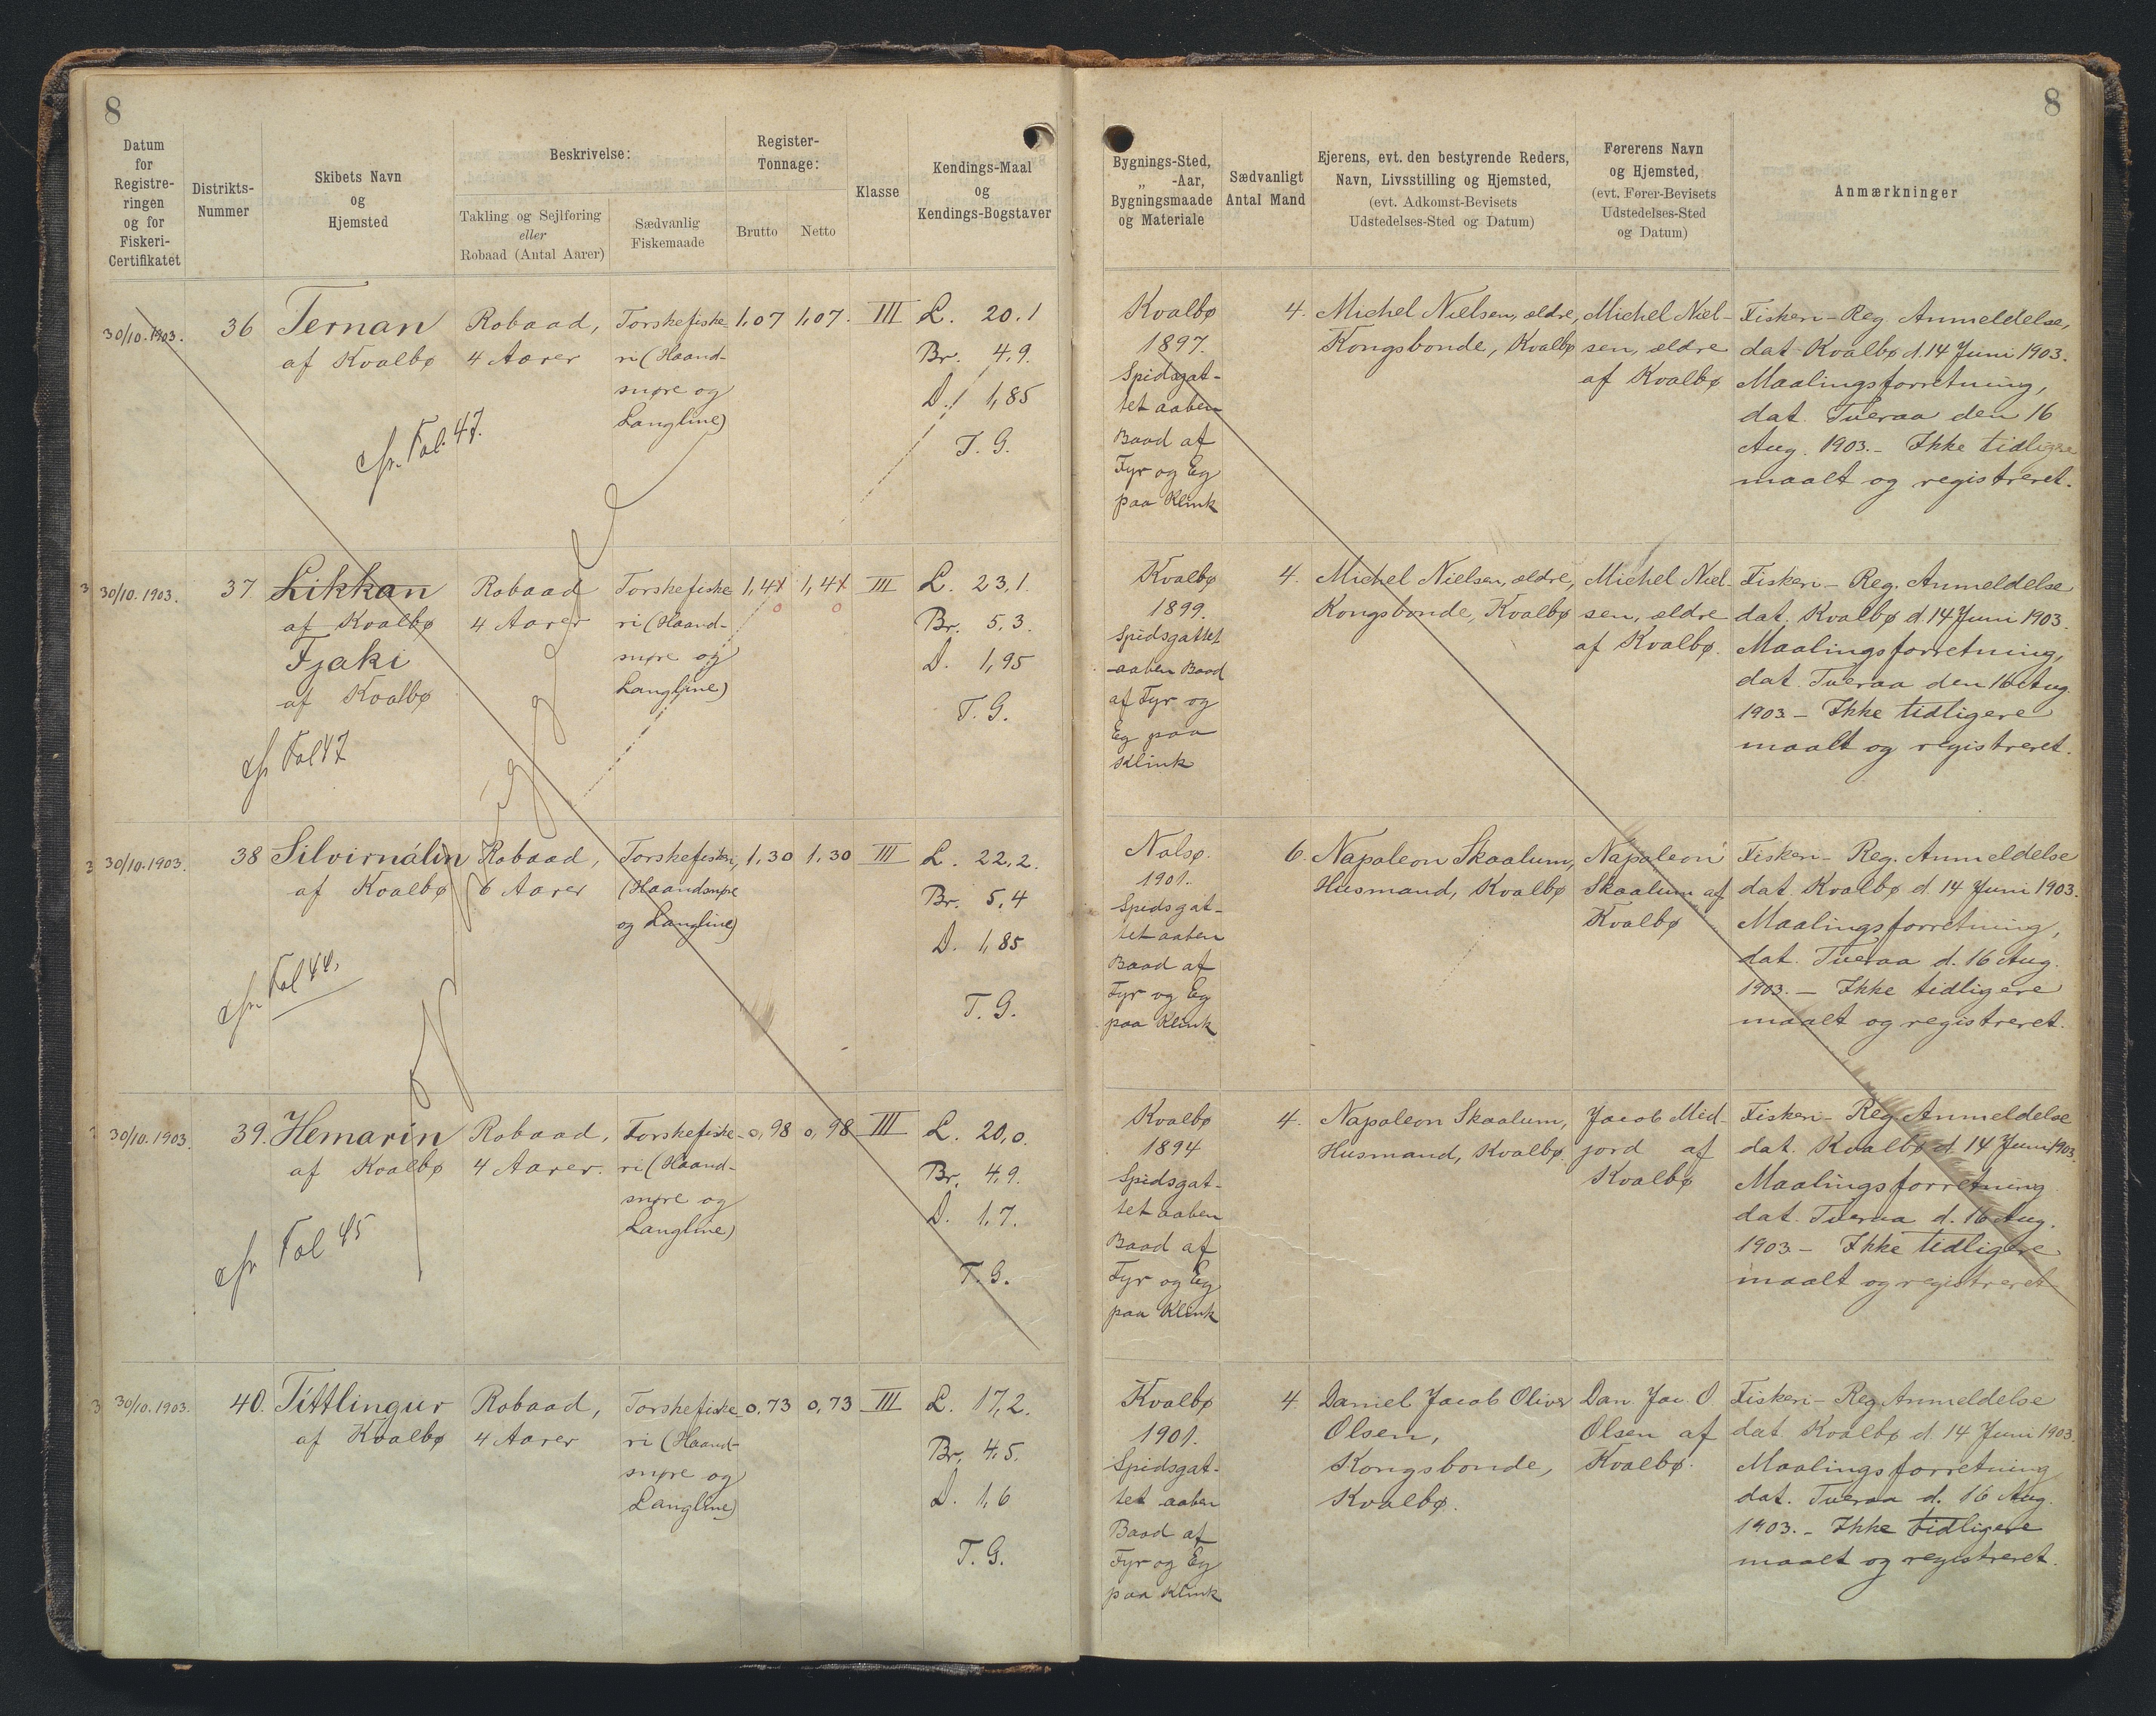 8
8
Datum
for
Registre-
ringen
og for
Fiskeri-
Certifikatet
Distrikts-
Nummer
Skibets Navn
og
Hjemsted
Beskrivelse:
Takling og Sejlføring
eller
Robaad (Antal Aarer)
Sædvanlig
Fiskemaade
Register-
Tonnage:
Brutto
Netto
Klasse
Kendings-Maal
og
Kendings-Bogstaver
Bygnings-Sted,
„ -Aar,
Bygningsmaade
og Materiale
Sædvanligt
Antal Mand
Ejerens, evt. den bestyrende Reders,
Navn, Livsstilling og Hjemsted,
(evt. Adkomst-Bevisets
Udstedelses-Sted og Datum)
Førerens Navn
og Hjemsted,
(evt. Fører-Bevisets
Udstedelses-Sted
og Datum)
Anmærkninger
30/10. 1903.
36
Ternan
af Kvalbø
cfr. Fol. 47.
Robaad,
4 Aarer
Torskefiske-
ri (Haand-
snøre og
Langline)
1,07
1,07.
III
L. 20.1
Br. 4,9.
D. 1,85
T. G.
Kvalbø
1897.
Spidsgat-
tet aaben
Baad af
Fyr og Eg
paa Klink
4.
Michel Nielsen, ældre,
Kongsbonde, Kvalbø
Michel Niel-
sen, ældre
af Kvalbø
Fiskeri-Reg. Anmeldelse,
dat. Kvalbø d. 14 Juni 1903.
Maalingsforretning,
dat. Tveraa den 16
Aug. 1903. - Ikke tidligere
maalt og registreret.
3 30/10. 1903.
37
Likkan
af Kvalbø
Fjaki
af Kvalbø
cfr Fol 47
Robaad
4 Aarer
Torskefiske
ri (Haand-
snøre og
Langline)
1,41
0
1,41
0
III
L. 23,1.
Br. 5,3.
D. 1,95
T. G.
Kvalbø
1899.
Spidsgattet
aaben Baad
af Fyr og
Eg paa
Klink
4.
Michel Nielsen, ældre,
Kongsbonde, Kvalbø
Michel Niel-
sen, ældre
af Kvalbø.
Fiskeri-Reg. Anmeldelse
dat. Kvalbø d. 14 Juni 1903.
Maalingsforretning,
dat. Tveraa den 16 Aug.
1903. - Ikke tidligere
maalt og registreret.
3 30/10. 1903.
38
Silvirnálin
af Kvalbø
cfr. Fol 44.
Robaad,
6 Aarer
Torskefiskeri,
(Haandsnøre
og Langline)
1,30
1,30
III
L. 22,2.
Br. 5,4
D. 1,85
T. G.
Nolsø.
1901.
Spidsgat-
tet aaben
Baad af
Fyr og Eg
paa Klink
6.
Napoleon Skaalum,
Husmand, Kvalbø
Napoleon
Skaalum af
Kvalbø
Fiskeri-Reg. Anmeldelse
dat. Kvalbø d. 14 Juni 1903.
Maalingsforretning,
dat. Tveraa d. 16 Aug.
1903. - Ikke tidligere
maalt og registreret.
30/10. 1903.
39.
Hemarin
af Kvalbø
cfr Fol 45
Robaad,
4 Aarer.
Torskefiske-
ri (Haand-
snøre og
Langline)
0,98
0,98
III
L. 20,0.
Br. 4,9.
D. 1,7.
T. G.
Kvalbø
1894
Spidsgat-
tet aaben
Baad af
Fyr og Eg
paa Klink
4.
Napoleon Skaalum,
Husmand, Kvalbø.
Jacob Mid-
jord af
Kvalbø
Fiskeri-Reg. Anmeldelse
dat. Kvalbø d. 14 Juni 1903.
Maalingsforretning
dat. Tveraa d. 16 Aug.
1903. - Ikke tidligere
maalt og registreret
3 30/10. 1903.
40.
Títtlingur
af Kvalbø
Robaad,
4 Aarer
Torskefiske-
ri (Haand-
snøre og
Langline)
0,73
0,73
III
L. 17,2.
Br. 4,5.
D. 1,6
T. G.
Kvalbø
1901.
Spidsgat-
tet aaben
Baad af
Fyr og Eg
paa Klink
4
Daniel Jacob Oliver
Olsen,
Kongsbonde,
Kvalbø.
Dan. Jac. O.
Olsen af
Kvalbø.
Fiskeri-Reg. Anmeldelse
dat. Kvalbø d. 14 Juni 1903.
Maalingsforretning
dat. Tveraa d. 16 Aug.
1903. - Ikke tidligere
maalt og registreret.